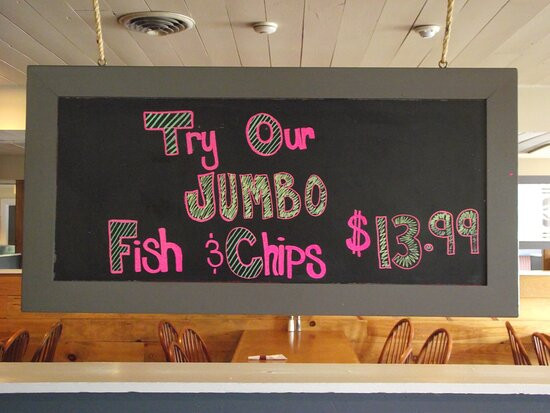 Try Our
JUMBO
Fish & Chips $13.99